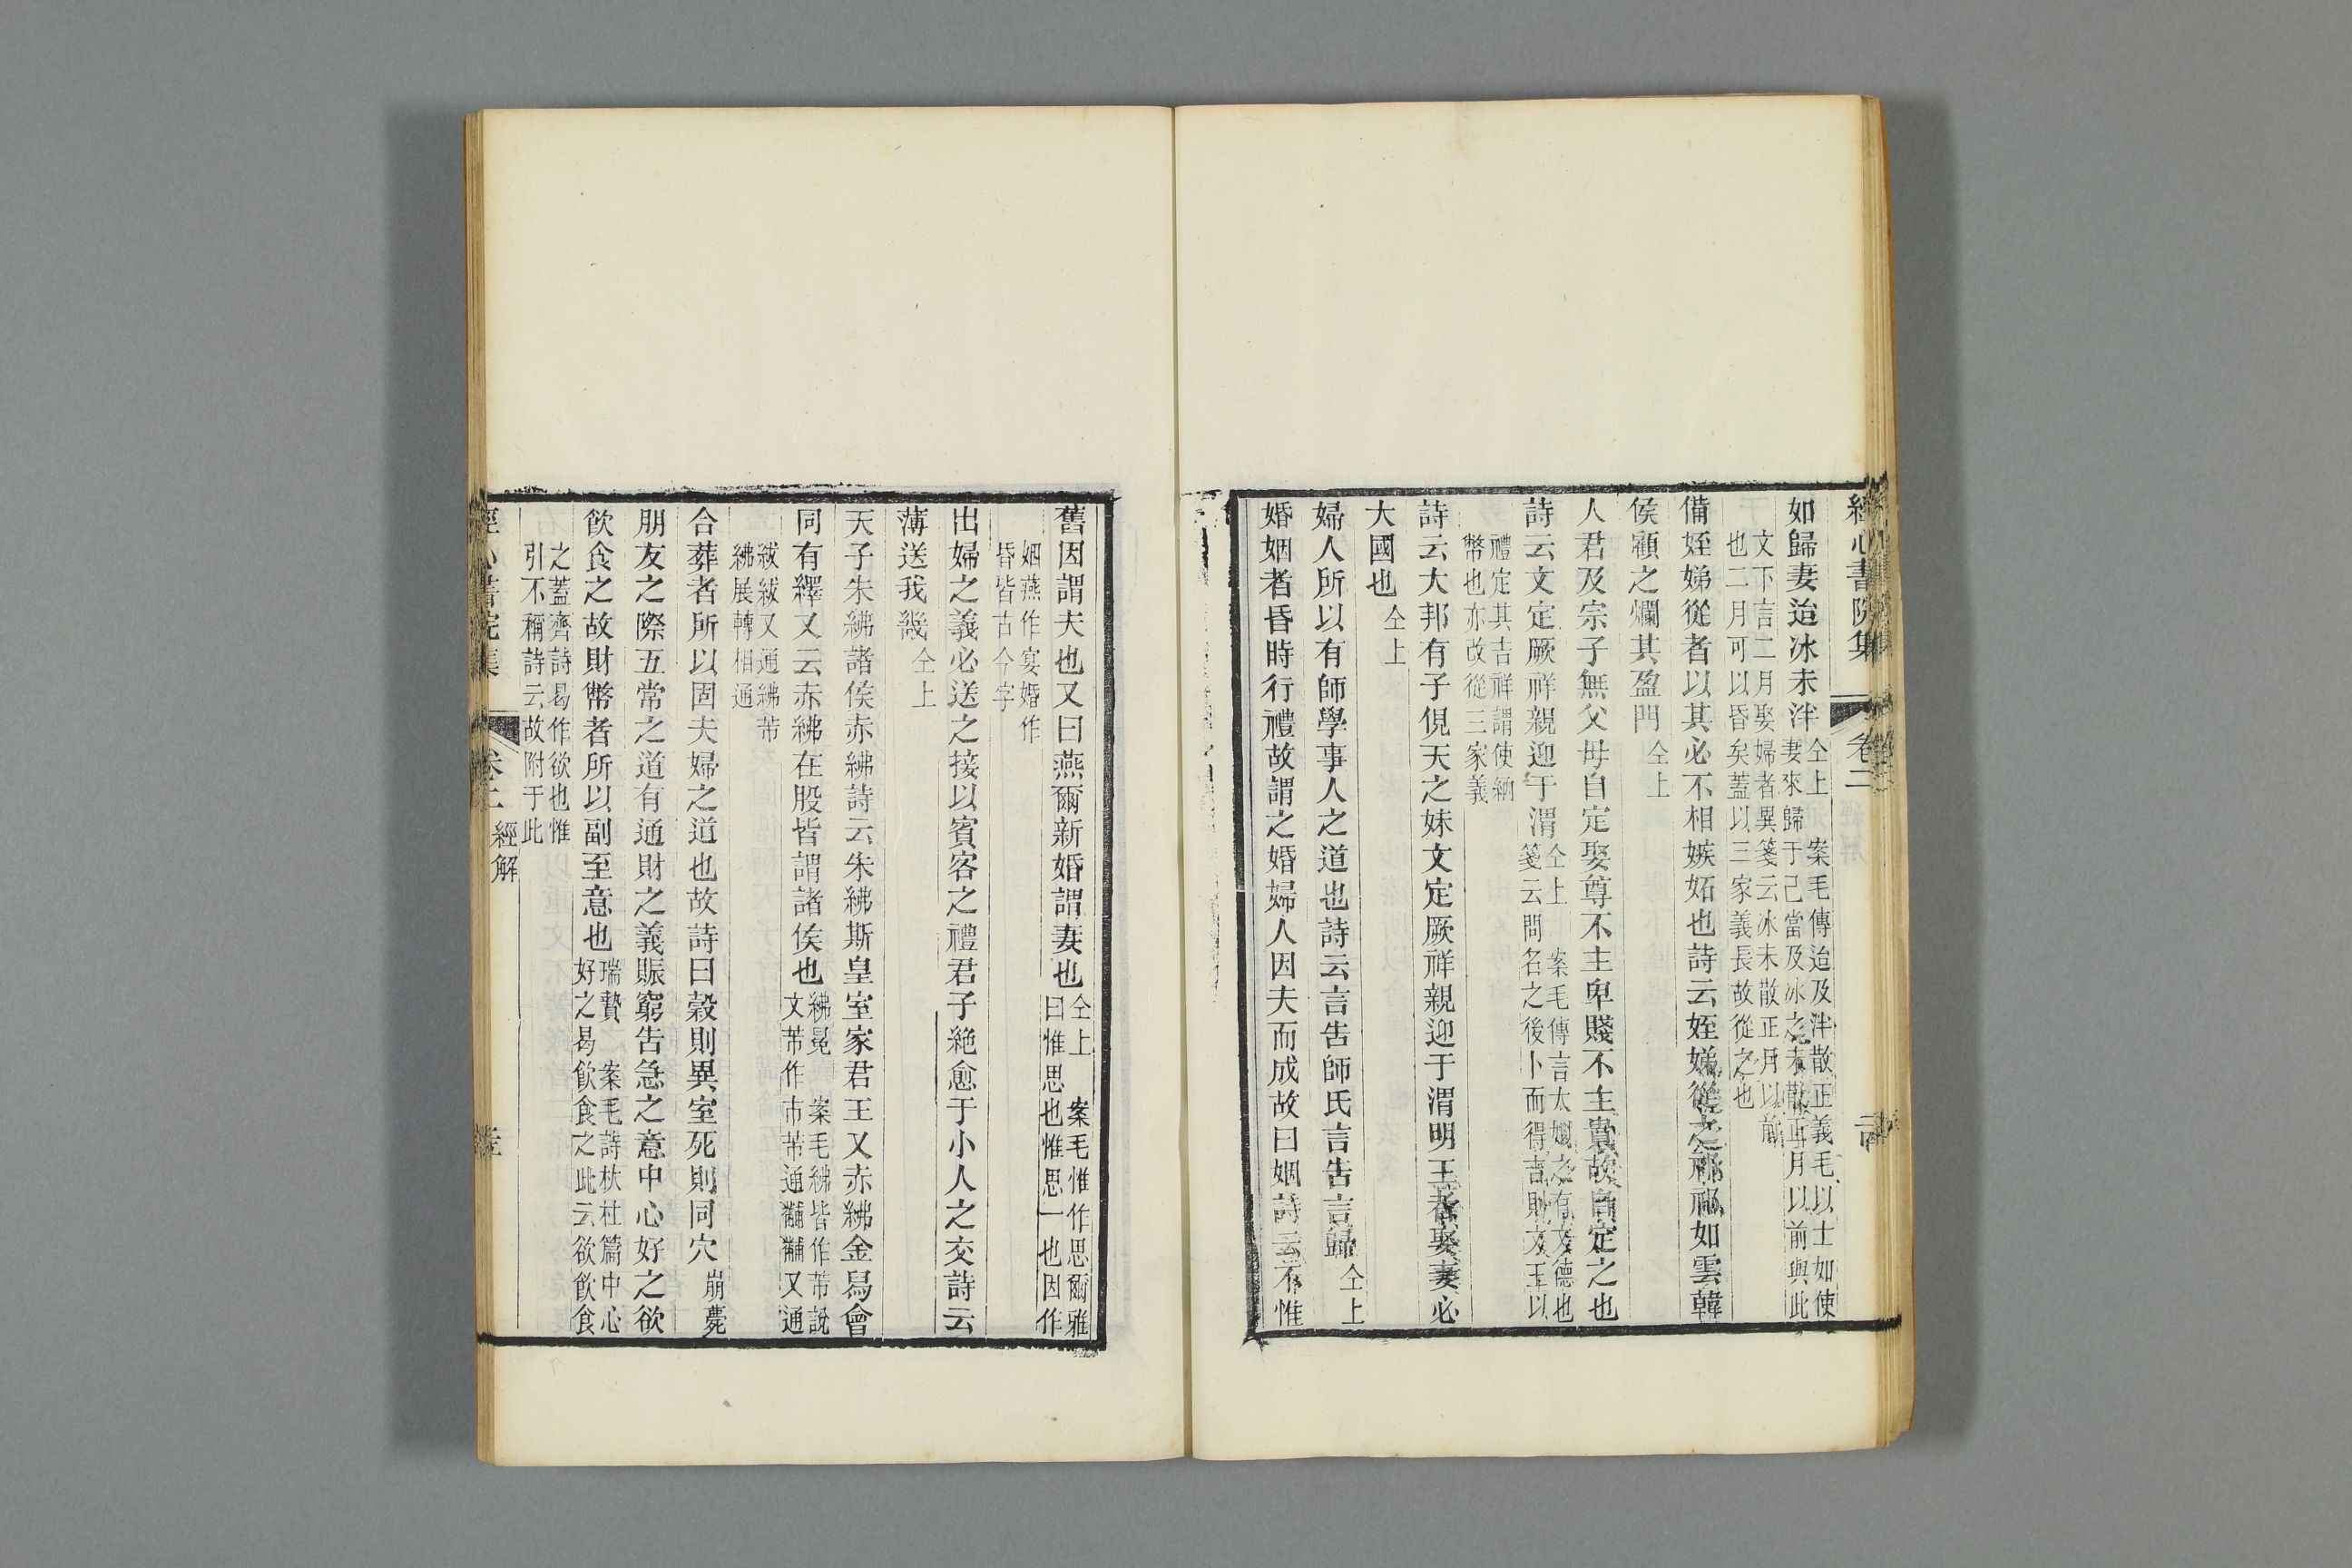 經心書院集 卷二
如歸妻迨冰未泮仝上 案毛傳迨及泮散正義毛以士如使
妻來歸于己當及冰之未散正月以前與此
文下言二月娶婦者異箋云冰未散正月以前
也二月可以昏矣蓋以三家義長故從之也
備姪娣從者以其必不相嫉妬也詩云姪娣從之祁祁如雲韓
侯顧之爛其盈門仝上
人君及宗子無父母自定娶尊不主卑賤不主貴故自定之也
詩云文定厥祥親迎于渭仝上 案毛傳言太姒之有文德也
箋云問名之後卜而得吉則文王以
禮定其吉祥謂使納
幣也亦改從三家義
詩云大邦有子俔天之妹文定厥祥親迎于渭明王者娶妻必
大國也仝上
婦人所以有師學事人之道也詩云言告師氏言告言歸仝上
婚姻者昏時行禮故謂之婚婦人因夫而成故曰姻詩云不惟
舊因謂夫也又曰燕爾新婚謂妻也仝上 案毛惟作思爾雅
曰惟思也惟思一也因作
姻燕作宴婚作
昏皆古今字
出婦之義必送之接以賓客之禮君子絶愈于小人之交詩云
薄送我畿仝上
天子朱紼諸侯赤紼詩云朱紼斯皇室家君王又赤紼金舄會
同有繹又云赤紼在股皆謂諸侯也紼冕 案毛紼皆作芾說
文芾作巿芾通黼黼又通
紱紱又通紼芾
紼展轉相通
合葬者所以固夫婦之道也故詩曰穀則異室死則同穴崩薨
朋友之際五常之道有通財之義賑窮告急之意中心好之欲
飲食之故財幣者所以副至意也瑞贄 案毛詩杕杜篇中心
好之曷飲食之此云欲飲食
之蓋齊詩曷作欲也惟
引不稱詩云故附于此
經心書院集 卷二 經解